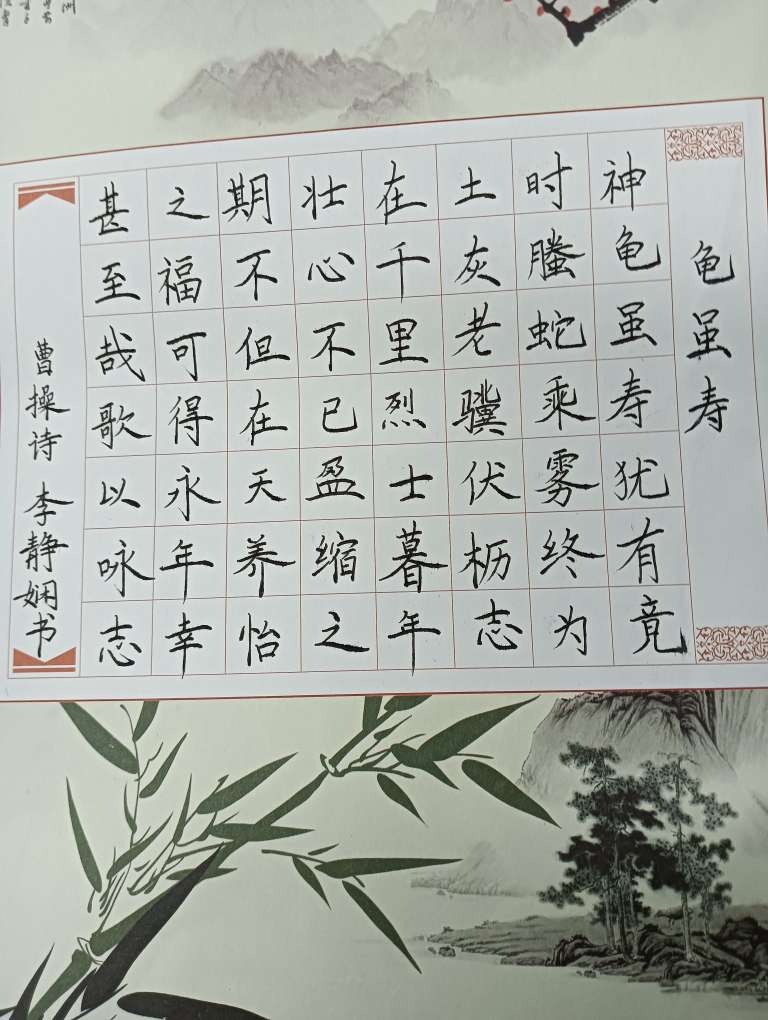 龟虽寿
神龟虽寿犹有竟
时螣蛇乘雾终为
土灰老骥伏枥志
在千里烈士暮年
壮心不已盈缩之
期不但在天养怡
之福可得永年幸
甚至哉歌以咏志
曹操诗 李静娴书
洲